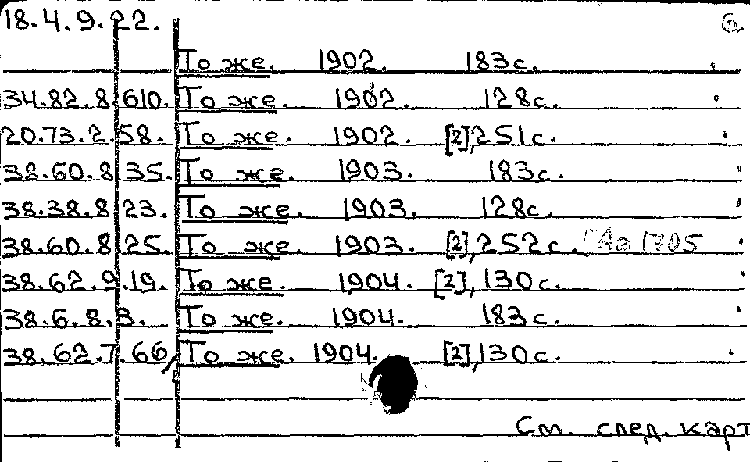 18.4.9.22. 6.
То же. 1902. 183с.
34.82.8.610. То же. 1902. 128с.
20.73.2.58. То же. 1902. [2], 251с.
38.60.8.35. То же. 1903. 183с.
38.38.8.23. То же. 1903. 128с.
38.60.8.25. То же. 1903. [2], 252с.
38.62.9.19. То же. 1904. [2], 130с.
38.6.8.3. То же. 1904. 183с.
38.62.7.66, То же. 1904. [2], 130с.
См. след. карт